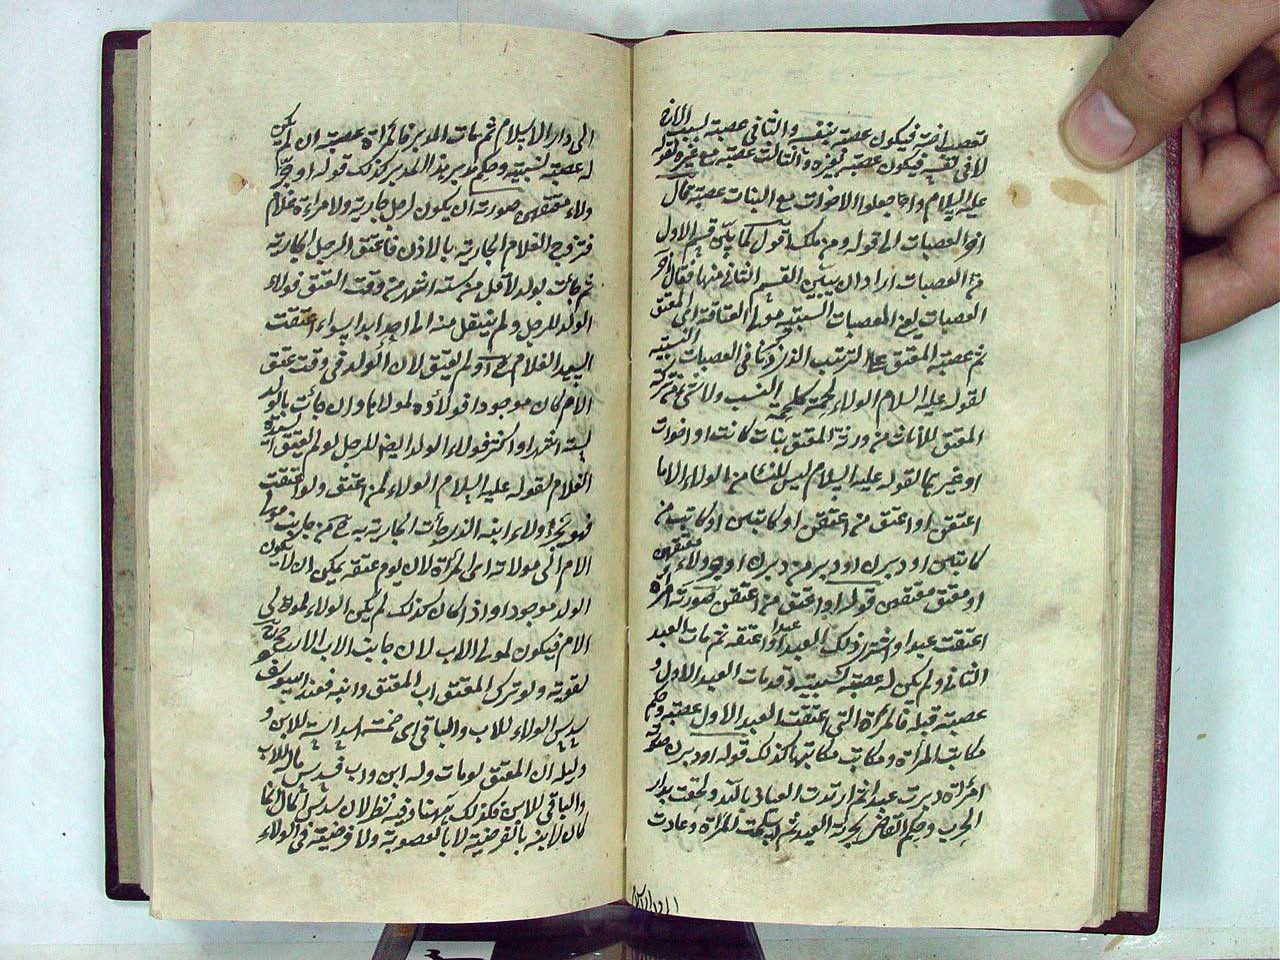 لا فى نفسه فيكون عصبة بغيره والثالث عصبة مع غيره لقوله
عليه السلام واجعلوا الاخوات مع البنات عصبة قال
اخر العصبات الى قوله ومن ملك اقول لما بين قسم الاول
من العصبات اراد ان يبين القسم الثانى منها فقال اخر
العصبات يعنى العصبات السببية مولى العتاقة اى المعتق
ثم عصبة المعتق على الترتيب الذى ذكرنا فى العصبات النسبية
لقوله عليه السلام الولاء لحمة كلحمة النسب ولا شئ من تركة
المعتق للاناث من ورثة المعتق بنات كانت او اخوات
او غيرهما لقوله عليه السلام ليس للنساء من الولاء الا ما
اعتقن او اعتق من اعتقن او كاتبن او كاتب من
كاتبن او دبرن او دبر من دبرن او جر ولاء معتقهن
او معتق معتقهن قوله او اعتق من اعتقن صورته امرأة
اعتقت عبدا واشترى ذلك العبد عبدا واعتقه ثم مات العبد
الثانى ولم يكن له عصبة نسبية وقد مات العبد الاول و
عصبته قبله فالمرأة التى اعتقت العبد الاول عصبته وحكم
مكاتب المرأة ومكاتب مكاتبها كذلك قوله او دبرن صورته
امرأة دبرت عبدا ثم ارتدت العياذ بالله ولحقت بدار
الحرب وحكم القاضى بحرية العبد ثم اسلمت المرأة وعادت
الى دار الاسلام ثم مات المدبر فالمرأة عصبته ان لم يكن
له عصبة نسبية وحكم مدبر هذا المدبر كذلك قوله او جر
ولاء معتقهن صورته ان يكون لرجل جارية ولامراءة غلام
فتزوج الغلام الجارية بالاذن فاعتق الرجل الجارية
ثم جائت بولد لاقل من ستة اشهر من وقت العتق فولاء
الولد للرجل ولم ينتقل منه الى احد ابدا سواء اعتقت
السيد الغلام او لم يعتق لان الولد فى وقت عتق
الام كان موجودا فولاؤه لمولاها وان جائت بالولد
لستة اشهر او اكثر فولاء الولد ايضا للرجل لو لم يعتق
الغلام لقوله عليه السلام الولاء لمن اعتق ولو اعتقت
فهو يجر ولاء ابنه الذى جائت الجارية به من جانب
الام اى مولاته اى المرأة لان يوم عتقه يمكن ان لا يكون
الولد موجودا واذا كان كذلك لم يكن الولاء لمولى
الام فيكون لمولى الاب لان جانب الاب
لقوته ولو ترك المعتق اب المعتق وابنه فعند ابى يوسف
سدس الولاء للاب والباقى اى خمسة اسداسه للابن و
دليله ان المعتق لو مات وله ابن واب فسدس ماله للاب
والباقى للابن فكذلك ههنا وفيه نظر لان سدس المال انما
كان لابيه بالفرضية لا بالعصوبة ولا فرضية فى الولاء